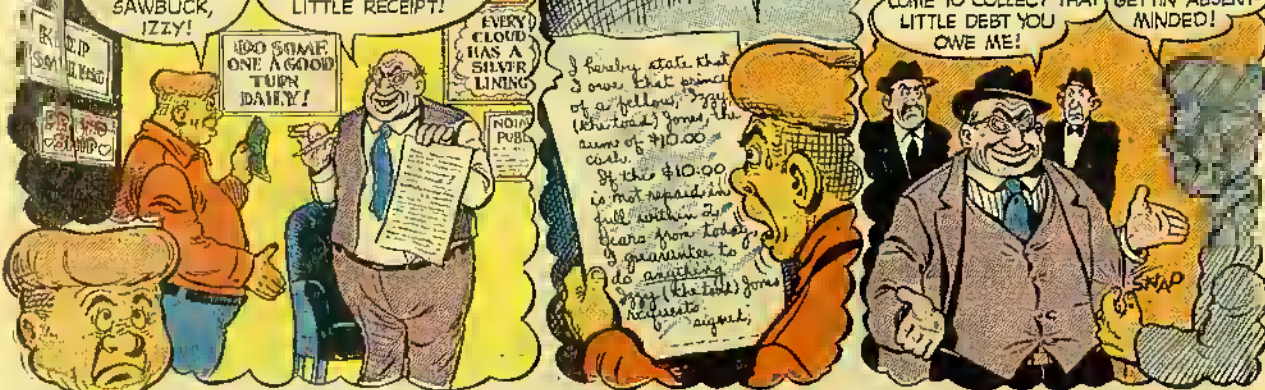 SAWBUCK,
IZZY!
LITTLE RECEIPT!
KEEP
DO SOME
ONE A GOOD
TURN
DAILY!
EVERY
CLOUD
HAS A
SILVER
LINING
I hereby state that
I owe that prince
of a fellow, Izzy
(the toad) Jones, the
sum of $10.00
cash.
If this $10.00
is not repaid in
full within 2
years from today,
I guarantee to
do anything
Izzy (the toad) Jones
requests.
signed,
COME TO COLLECT THAT
LITTLE DEBT YOU
OWE ME!
GETTIN' ABSENT
MINDED!
SNAP